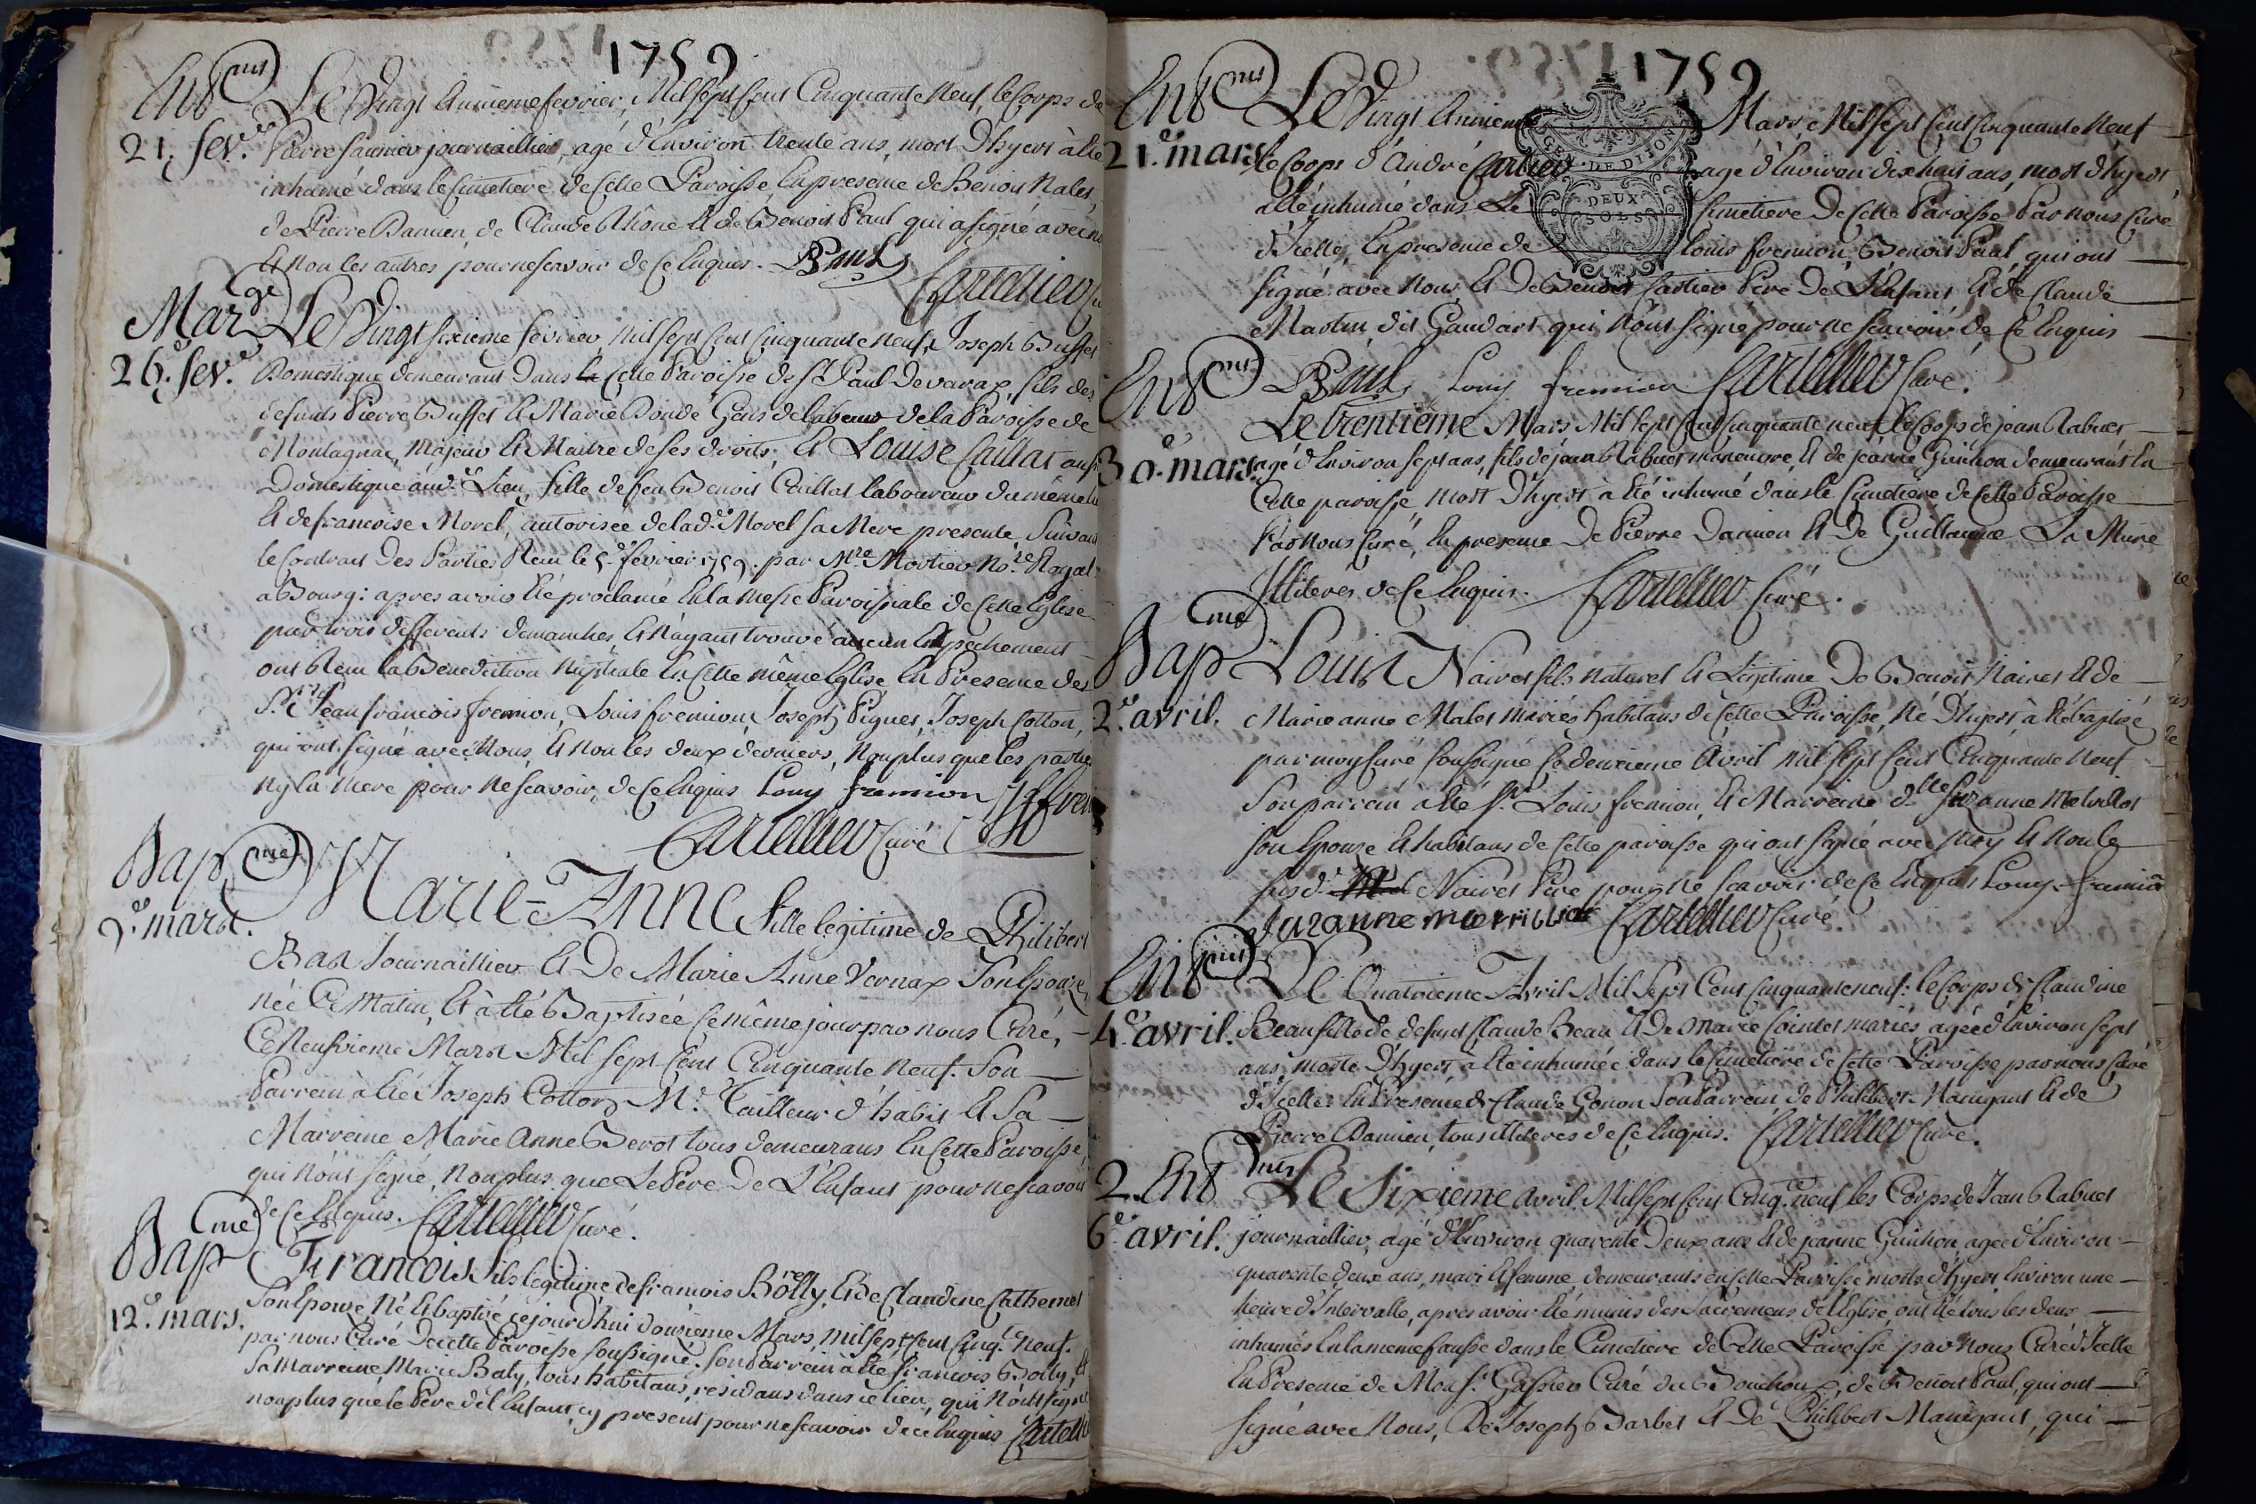 1759
Ent.ms Le Vingt Unieme fevrier, Mil sept Cent Cinquante Neuf, le Corps de
21.e fev.er Pierre Saunier journaillier, agé d'Environ trente ans, mort D'hyers à été
inhumé dans le Cimetiere de Cette Paroisse, En presence de Benoit Nalet,
de Pierre Damien, de Claude Rhône Et de Benoit Paul qui a signé avec no
Et non les autres pour ne scavoir de Ce Enquis. BPaul
Cartellier Cu
Mar.ge Le Vingt sixieme fevrier Mil sept Cent Cinquante neuf, Joseph Buffet
26.e fev.er Domestique demeurant Dans la Cette Paroisse de St Paul De varax, fils des
defunts Pierre Buffet Et Marie Donde Gens de labeur de la Paroisse de
Montagnac, Majeur Et Maitre de ses droits; Et Louise Caillat aussi
Domestique aud.t Lieu, fille de feu Benoit Caillat laboureur du même lieu
Et de francoise Morel, autorisée de lad.e Morel sa Mere presente, Suivant
le Contrat Des Parties Recu le 5.e février 1759. par M.re Mortier No.re Royal
a Bourg: apres avoir été proclamé En la Messe Paroissiale de Cette Eglise
par trois differents dimanches Et N'ayant trouvé aucun Empechement
ont Recu la Benediction Nuptiale En Cette même Eglise En Presence des
S.rs Jean francois fremion, Louis fremion Joseph Piquet, Joseph Cotton,
qui ont signé avec Nous, Et Non les deux derniers, Non plus que les parties
Ny la Mere pour Ne scavoir, de Ce Enquis Louy fremion JfFrem
Cartellier Curé
Bap.me Marie-Anne fille legitime de Philibert
9.e mars. Bas Journaillier Et De Marie Anne Vernax Son Epouse
née Ce Matin, Et à été Baptisée Ce même jour par nous Curé,
Ce Neufvieme Mars Mil sept Cent Cinquante Neuf. Son
Parrein à été Joseph Cotton M.e Tailleur d'habit Et Sa
Marreine Marie Anne Berot tous demeurans En Cette Paroisse,
qui N'ont signé, Non plus que Le Père De L'Enfant pour ne scavoir
de Ce Enquis. Cartellier Curé.
Bap.me Francois fils legitime de francois Bolly, Et de Claudine Cathenet
12.e mars. Son Epouse Né Et baptisé ce jourd'hui douzieme Mars, Mil sept Cent Cinq.te Neuf.
par nous Curé De cette Paroisse Soussigné. Son Parrein à été francois Bolly, Et
Sa Marreine, Marie Baly, tous habitans, residans dans ce lieu, qui N'ont signé
non plus que le Pere de l'Enfant cy present pour ne scavoir de ce Enquis Cartell
1759
Ent.ms Le Vingt Unieme Mars, Mil sept Cent Cinquante Neuf
21.e mars le Corps d'André Cartier agé d'Environ dix huit ans, mort d'hyers
a été inhumé dans Le Cimetiere De Cette Paroisse Par nous Curé
d'Icelle, En presence de louis fremion, Benoit Paul, qui ont
signé avec Nous Et De Benoit Cartier Père De L'Enfant Et de Claude
Martin dit Gaudart qui N'ont signé pour ne scavoir de Ce Enquis
GEN. DE DIJON
DEUX
SOLS
BPaul Louy fremion Cartellier Curé.
Ent.ms Le trentieme Mars Mil sept Cent Cinquante neuf le Corps de jean Rabuet
30.e mars. agé d'Environ sept ans, fils de jean Rabuet manoeuvre, Et de jeanne Guichon demeurant En
Cette paroisse mort D'hyers à été inhumé dans le Cimetiere de Cette Paroisse
Par Nous Curé, En presence De Pierre Damien Et De Guillaume La Mure
Illiterés de Ce Enquis. Cartellier Curé.
Bap.me Louis Nairet fils naturel Et Légitime De Benoit Nairet Et de
2.e avril. Marie anne Nalet mariés habitans de Cette Paroisse, Né D'hyers, à été baptisé
par moy Curé Soussigné Ce deuxieme Avril Mil sept Cent Cinquante Neuf
Son parrein à été S.r Louis fremion, Et Marreine d.lle Suzanne
Son Epouse Et habitans de Cette paroisse qui ont signé avec Moy Et Non le
sus d.t Nairet Père pour Ne scavoir de Ce Enquis Louy fremion
Suzanne Cartellier Curé
Ent.ms Le Quatrieme Avril Mil Sept Cent Cinquante neuf: le Corps de Claudine
4.e avril. Beau fille de defunt Claude Beau Et De Marie Cointet mariés agée d'Environ sept
ans, morte D'hyers à été inhumée dans le Cimetière de Cette Paroisse par nous Curé
d'Icelle: En Presence de Claude Gonon Son Parrein de Philibert Manigant Et de
Pierre Damien, tous illiterés de Ce Enquis. Cartellier Curé.
2. Ent.ms Le Sixieme avril Mil sept Cent Cinq.te neuf les Corps de Jean Rabuet
6.e avril. journaillier, agé d'Environ quarente Deux ans Et de jeanne Guichon, agée d'Environ
quarente deux ans, mari Et femme, demeurants en Cette Paroisse morts d'hyers Environ une
heure d'Intervalle, apres avoir été munis des Sacremens de l'Eglise, ont été tous les deux
inhumés En la meme fausse dans le Cimetiere de Cette Paroisse par Nous Curé d'Icelle
En Presence de Mons.r Gassier Curé du Bouchoux, de Benoit Paul, qui ont
signé avec Nous, De Joseph Barbet Et De Philibert Manigant, qui